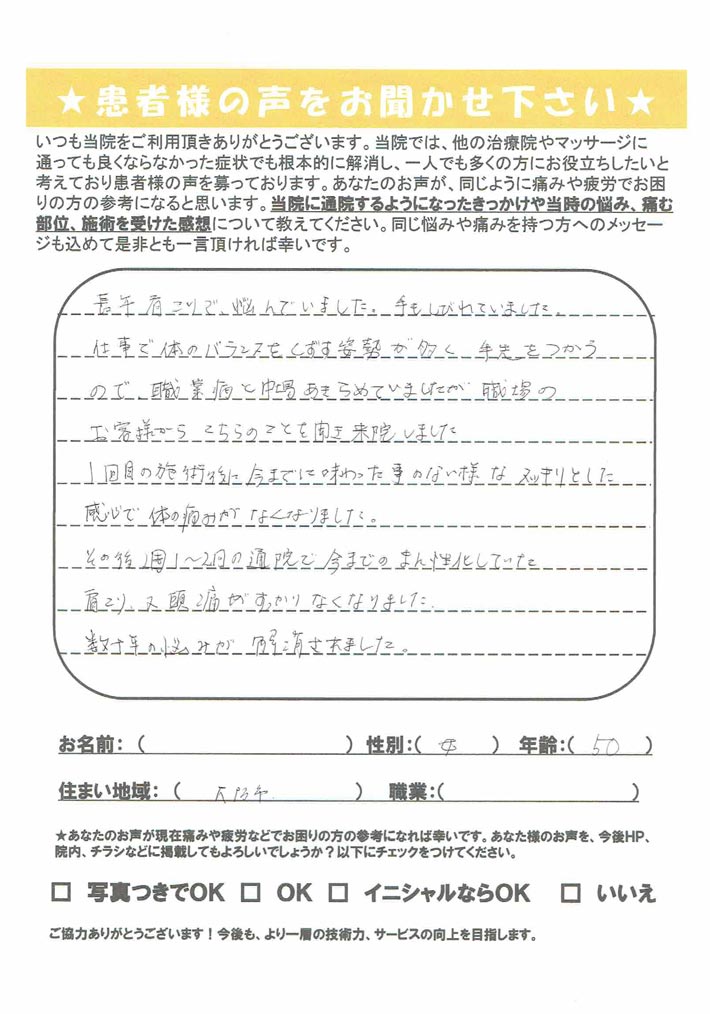 ★患者様の声をお聞かせ下さい★
いつも当院をご利用頂きありがとうございます。当院では、他の治療院やマッサージに
通っても良くならなかった症状でも根本的に解消し、一人でも多くの方にお役立ちしたいと
考えており患者様の声を募っております。あなたのお声が、同じように痛みや疲労でお困
りの方の参考になると思います。当院に通院するようになったきっかけや当時の悩み、痛む
部位、施術を受けた感想について教えてください。同じ悩みや痛みを持つ方へのメッセー
ジも込めて是非とも一言頂ければ幸いです。
長年肩こりで、悩んでいました。手もしびれていました。
仕事で体のバランスをくずす姿勢が多く 手先をつかう
ので、職業病と半場あきらめていましたが 職場の
お客様から こちらのことを聞き来院しました
1回目の施術後に今までに味わった事のない様な スッキリとした
感じで 体の痛みが なくなりました。
その後 週1〜2回の通院で 今までの まん性化していた
肩こり、又 頭痛がすっかりなくなりました。
数十年の悩みが 解消されました。
お名前：（ ）性別：（ 女 ）年齢：（ 50 ）
住まい地域：（ 大阪市 ）職業：（ ）
★あなたのお声が現在痛みや疲労などでお困りの方の参考になれば幸いです。あなた様のお声を、今後HP、
院内、チラシなどに掲載してもよろしいでしょうか？以下にチェックをつけてください。
□ 写真つきでOK □ OK □ イニシャルならOK □ いいえ
ご協力ありがとうございます！今後も、より一層の技術力、サービスの向上を目指します。